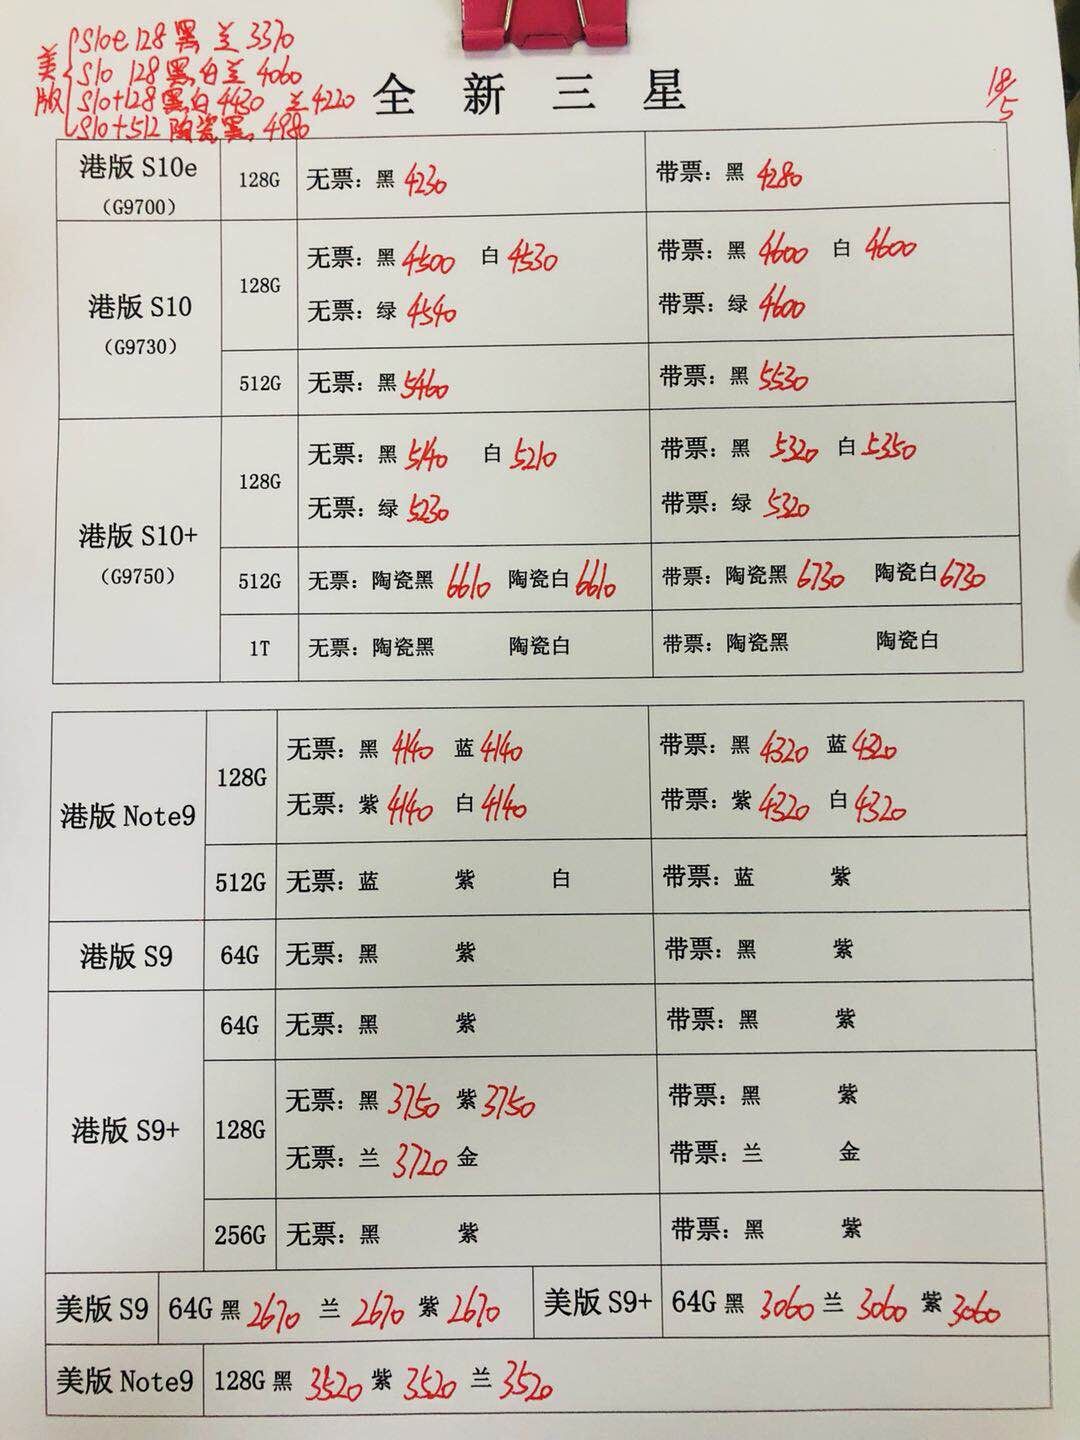 美版 S10e 128 黑 兰 3370
S10 128 黑 白 兰 4060
S10+128 黑 白 4430 兰 4220
S10+512 陶瓷黑 4980
全新三星
18/5
港版 S10e
(G9700)
128G 无票：黑 4230 带票：黑 4280
港版 S10
(G9730)
128G 无票：黑 4500 白 4530 带票：黑 4600 白 4600
无票：绿 4540 带票：绿 4600
512G 无票：黑 5460 带票：黑 5530
港版 S10+
(G9750)
128G 无票：黑 5140 白 5210 带票：黑 5320 白 5350
无票：绿 5230 带票：绿 5320
512G 无票：陶瓷黑 6610 陶瓷白 6610 带票：陶瓷黑 6730 陶瓷白 6730
1T 无票：陶瓷黑 陶瓷白 带票：陶瓷黑 陶瓷白
港版 Note9
128G 无票：黑 4140 蓝 4140 带票：黑 4320 蓝 4320
无票：紫 4140 白 4140 带票：紫 4320 白 4320
512G 无票：蓝 紫 白 带票：蓝 紫
港版 S9 64G 无票：黑 紫 带票：黑 紫
港版 S9+
64G 无票：黑 紫 带票：黑 紫
128G 无票：黑 3750 紫 3750 带票：黑 紫
无票：兰 3720 金 带票：兰 金
256G 无票：黑 紫 带票：黑 紫
美版 S9 64G 黑 2670 兰 2670 紫 2670 美版 S9+ 64G 黑 3060 兰 3060 紫 3060
美版 Note9 128G 黑 3520 紫 3520 兰 3520